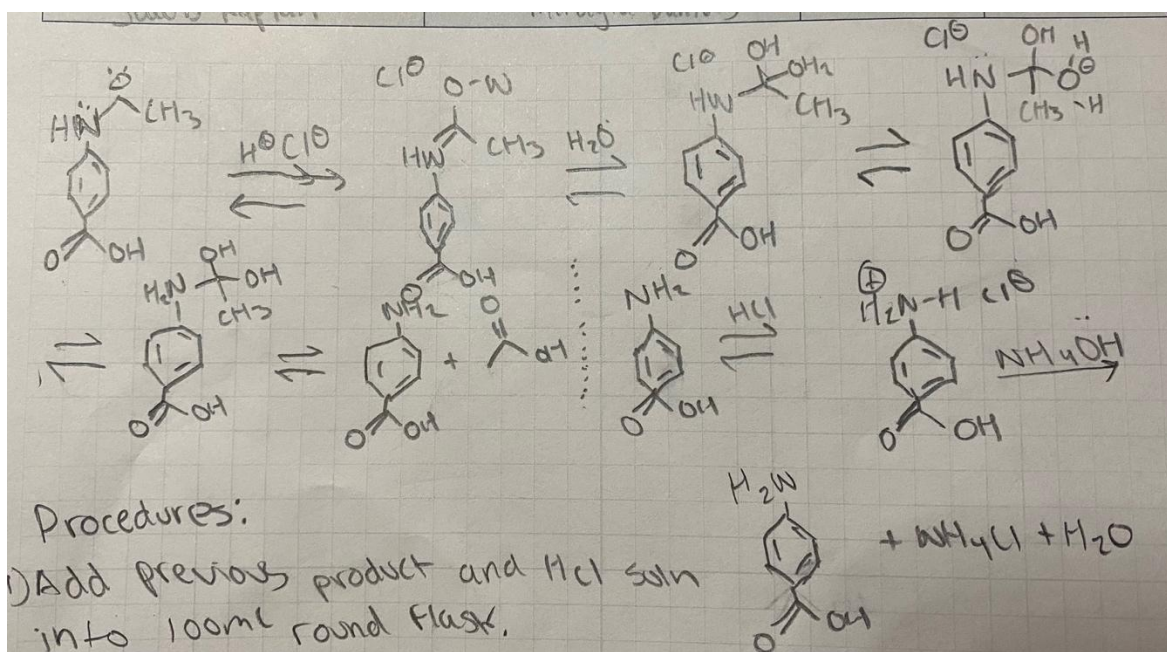 Ö
HN CH3
O OH
H⊕ Cl⊖
Cl⊖ O-H
HN CH3
O OH
H2Ö
Cl⊖ OH
OH2
HN CH3
O OH
Cl⊖ OH H
HN O⊖
CH3 -H
O OH
OH
H2N OH
CH3
O OH
NH2
O OH
+
O
OH
NH2
O OH
HCl
⊕
H2N-H Cl⊖
O OH
NH4ÖH
H2N
O OH
+ NH4Cl + H2O
Procedures:
1) Add previous product and HCl soln
into 100ml round flask.